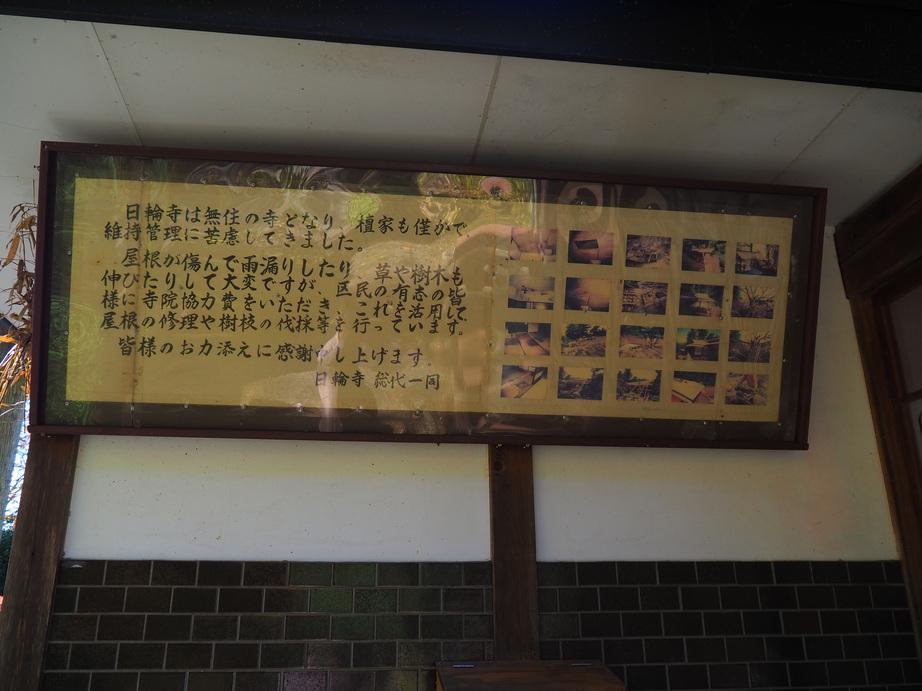 日輪寺は無住の寺となり、檀家も僅かで
維持管理に苦慮してきました。
屋根が傷んで雨漏りしたり、草や樹木も
伸びたりして大変ですが、区民の有志の皆
様に寺院協力費をいただき、これを活用して
屋根の修理や樹枝の伐採等を行っています。
皆様のお力添えに感謝申し上げます。
日輪寺 総代一同